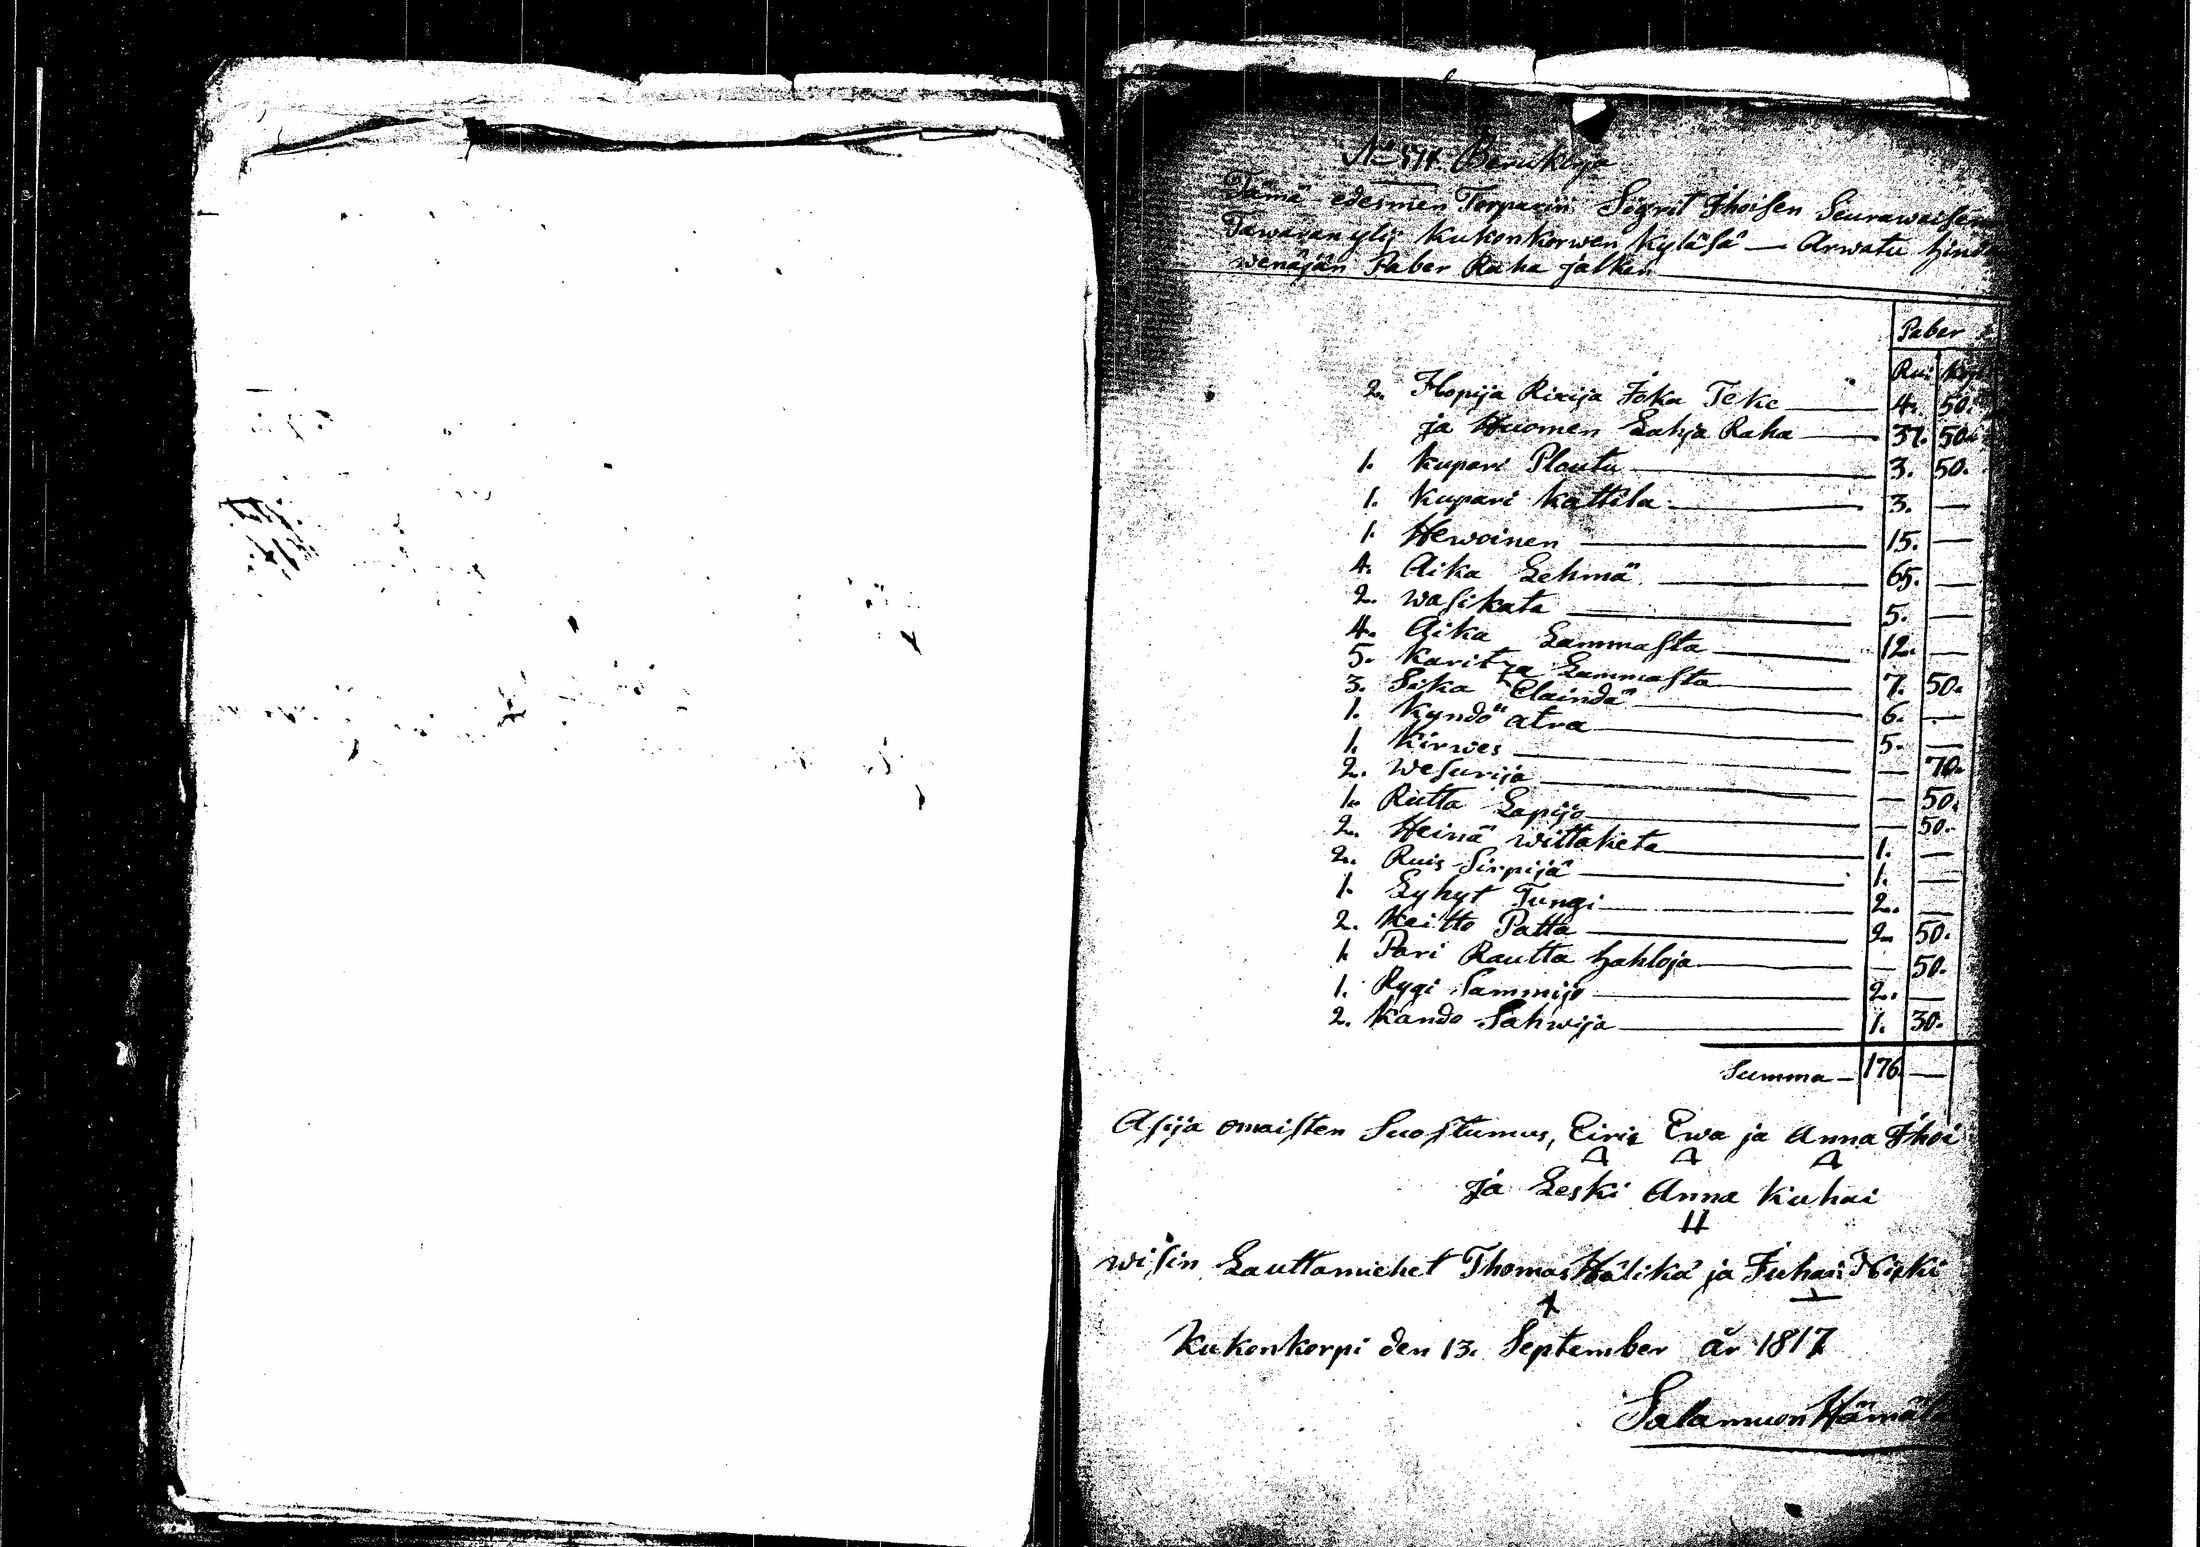 Perukirja
Tämä edesmen Torparin Sigrit Ihoisen Seurawaisen
Tawaran ylis Kukonkorwen Kyläsä — Arwatu hind
wenäjän Paber Raha jälken
Paber
Ru: Kop
2. Hopija Ririja Joka Teke — 4. 50.
ja Huomen Lahja Raha — 37. 50.
1. Kupari Plautu — 3. 50.
1. Kupari Kattila — 3. —
1. Hewoinen — 15. —
4. Aika Lehmä — 65. —
2. wasikata — 5. —
4. Aika Lammasta — 12. —
5. Karitza Lammasta — 7. 50.
3. Sika Elaindä — 6. —
1. Kyndö atra — 5. —
1. Kirwes — — 70.
2. wesurija — — 50.
1. Rutta Lapijo — — 50.
2. Heinä wittaketa — 1. —
2. Ruis Sirpijä — 1. —
1. Lyhyt Tungi — 2. —
2. Keitto Patta — 2. 50.
1. Pari Rautta hahloja — — 50.
1. Rygi Sammijo — 2. —
2. Kando Sahwija — 1. 30.
Summa — 176 —
Asija omaisten Suostumus, Eiric Ewa ja Anna Ihoi
ja Leski Anna Kuhai
wisin Lauttamiehet Thomas Hälikä ja Juhan Niski
Kukonkorpi den 13. September år 1817
Salamuon Hämäl